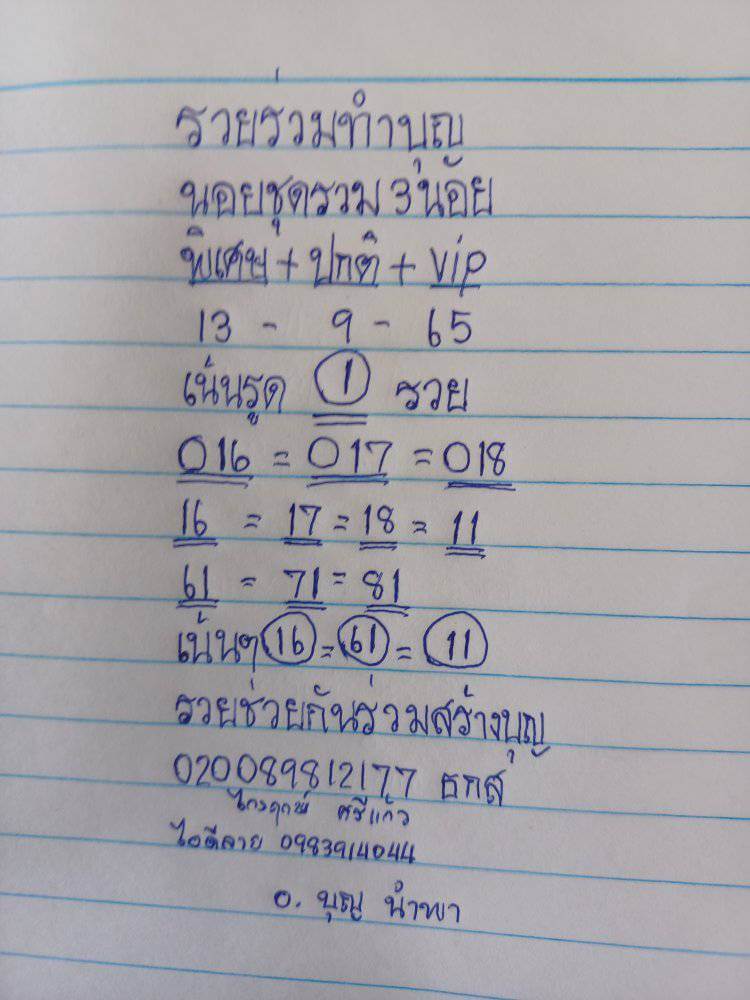 รวยร่วมทำบุญ
นอยชุดรวม 3 น้อย
พิเศษ + ปกติ + vip
13 - 9 - 65
เน้นรูด 1 รวย
016 = 017 = 018
16 = 17 = 18 = 11
61 = 71 = 81
เน้นๆ 16 = 61 = 11
รวยช่วยกันร่วมสร้างบุญ
020089812177 ธกส
ไกรฤกษ์ ศรีแก้ว
ไอดีลาย 0983914044
อ. บุญ นำพา